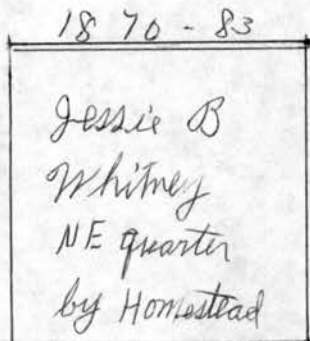 1870-83
Jessie B
Whitney
NE quarter
by Homestead